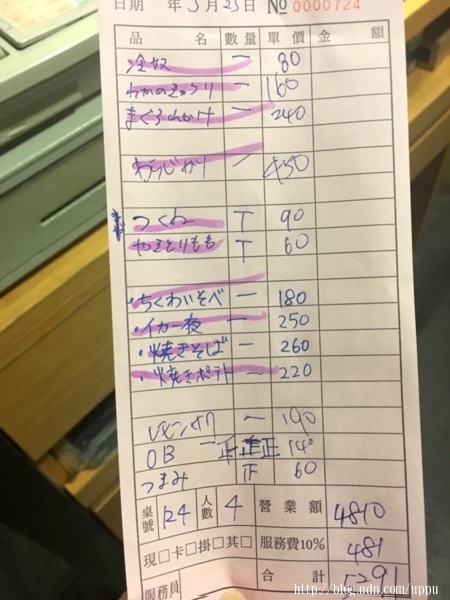 日期 年 3月25日 № 0000724
品名 數量 單價 金額
冷奴 一 80
一 160
まぐろ 一 240
一 450
つくね T 90
やきとりもも T 60
・ちくわいそべ 一 180
・イカ一夜 一 250
・焼きそば 一 260
・焼きポテト 一 220
レモンサワ 一 190
OB 一 正正正 140
つまみ 正 60
桌號 24 人數 4 營業額 4810
現□卡□掛□其□ 服務費10% 481
服務員 合計 5291
http://blog.udn.com/uppu